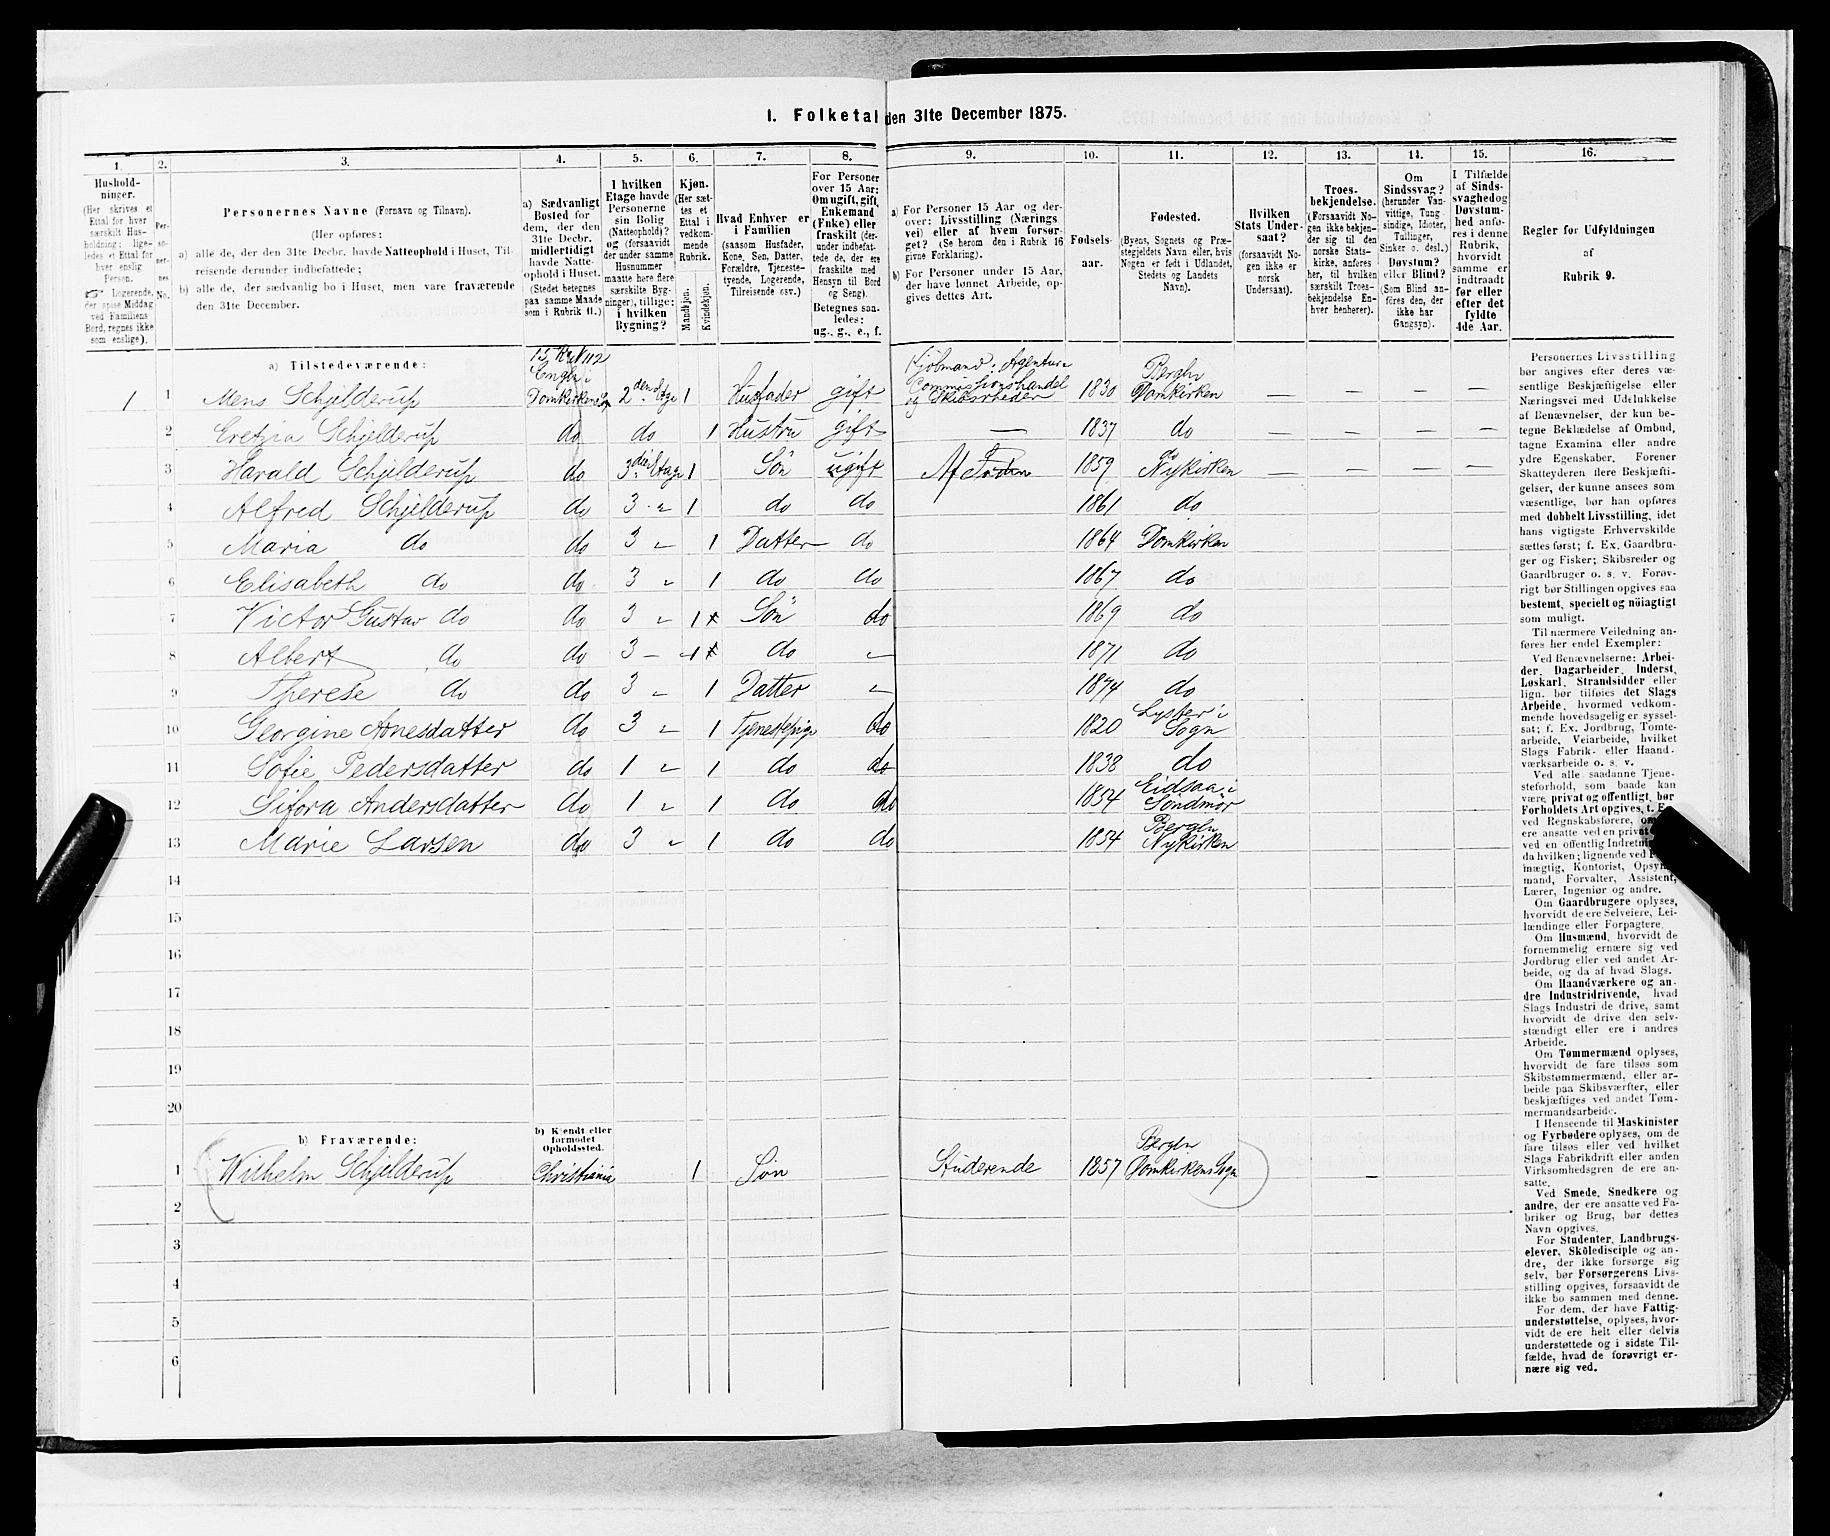 1. Folketal den 31te December 1875.
1. 2. 3. 4. 5. 6. 7. 8. 9. 10. 11. 12. 13. 14. 15. 16.
Hushold-
ninger.
(Her skrives et
Ettal for hver
særskilt Hus-
holdning; lige-
ledes et Ettal for
hver enslig
Person.
☞ Logerende,
der spise Middag
ved Familiens
Bord, regnes ikke
som enslige).
Per-
so-
ner-
nes
No.
Personernes Navne (Fornavn og Tilnavn).
(Her opføres:
a) alle de, der den 31te Decbr. havde Natteophold i Huset, Til-
reisende derunder indbefattede;
b) alle de, der sædvanlig bo i Huset, men vare fraværende
den 31te December.
a) Sædvanligt
Bosted for
dem, der den
31te Decbr.
midlertidigt
havde Natte-
ophold i Huset.
(Stedet betegnes
paa samme Maade
som i Rubrik 11.)
I hvilken
Etage havde
Personerne
sin Bolig
(Natteophold)?
og (forsaavidt
der under samme
Husnummer
maatte høre flere
særskilte Byg-
ninger), tillige:
i hvilken
Bygning?
Kjøn.
(Her sæt-
tes et
Ettal i
vedkom-
mende
Rubrik.
Mandkjøn.
Kvindekjøn.
Hvad Enhver er
i Familien
(saasom Husfader,
Kone, Søn, Datter,
Forældre, Tjeneste-
tyende, Logerende,
Tilreisende osv.)
For Personer
over 15 Aar:
Om ugift, gift,
Enkemand
(Enke) eller
fraskilt (der-
under indbefat-
tede de, der ere
fraskilte med
Hensyn til Bord
og Seng).
Betegnes saa-
ledes:
ug., g., e., f.
a) For Personer 15 Aar og der-
over: Livsstilling (Nærings
vei) eller af hvem forsør-
get? (Se herom den i Rubrik 16
givne Forklaring).
b) For Personer under 15 Aar,
der have lønnet Arbeide, op-
gives dettes Art.
Fødsels-
aar.
Fødested.
(Byens, Sognets og Præ-
stegjeldets Navn eller, hvis
Nogen er født i Udlandet,
Stedets og Landets
Navn).
Hvilken
Stats Under-
saat?
(forsaavidt No-
gen ikke er
norsk
Undersaat).
Troes-
bekjendelse.
(Forsaavidt No-
gen ikke bekjen-
der sig til den
norske Stats-
kirke, anføres
her, til hvilken
særskilt Troes-
bekjendelse En-
hver henhører).
Om
Sindssvag?
(herunder Van-
vittige, Tung
sindige, Idioter,
Tullinger,
Sinker o. desl.)
Døvstum?
eller Blind?
(Som Blind an-
føres den, der
ikke har
Gangsyn).
I Tilfælde
af Sinds-
svaghed og
Døvstum-
hed anfø-
res i denne
Rubrik,
hvorvidt
samme er
indtraadt
før eller
efter det
fyldte
4de Aar.
Regler for Udfyldningen
af
Rubrik 9.
a) Tilstedeværende:
1 1 Mens Schjelderup Domkirkens 2den Etage 1 Husfader gift Commissionshandel og Skibsrheder 1830 Bergen Domkirken — — — —
2 Eretzia Schjelderup do do 1 Hustru gift — 1837 do — — — —
3 Harald Schjelderup do 3die Etage 1 Søn ugift Af 1859 do Nykirken — — — —
4 Alfred Schjelderup do 3 „ 1 do do 1861 do
5 Maria do do 3 „ 1 Datter do 1864 Domkirken
6 Elisabeth do do 3 „ 1 do do 1867 do
7 Victor Gustav do do 3 „ 1 Søn do 1869 do
8 Albert do do 3 — 1 do „ 1871 do
9 Therese do do 3 „ 1 Datter „ 1874 do
10 Georgine Arnesdatter do 3 „ 1 Tjenestepige do 1820 Lyster i Sogn
11 Sofie Pedersdatter do 1 „ 1 do do 1838 do
12 Sifora Andersdatter do 1 „ 1 do do 1854 Eidsaa i Søndmør
13 Marie Larsen do 3 „ 1 do do 1854 Bergen Nykirken
14
15
16
17
18
19
20
b) Fraværende:
b) Kjendt eller
formodet
Opholdssted.
1 Wilhelm Schjelderup Christiania 1 Søn Studerende 1857 Bergen Domkirkens Sogn —
2
3
4
5
6
Personernes Livsstilling
bør angives efter deres væ-
sentlige Beskjæftigelse eller
Næringsvei med Udelukkelse
af Benævnelser, der kun be-
tegne Beklædelse af Ombud,
tagne Examina eller andre
ydre Egenskaber. Forener
Skatteyderen flere Beskjæfti-
gelser, der kunne ansees som
væsentlige, bør han opføres
med dobbelt Livsstilling, idet
hans vigtigste Erhvervskilde
sættes først; f. Ex. Gaardbru-
ger og Fisker; Skibsreder og
Gaardbruger o. s. v. Forøv-
rigt bør Stillingen opgives saa
bestemt, specielt og nöiagtigt
som muligt.
Til nærmere Veiledning an-
føres her endel Exempler:
Ved Benævnelserne: Arbei-
der, Dagarbeider, Inderst,
Løskarl, Strandsidder eller
lign. bør tilføies det Slags
Arbeide, hvormed vedkom-
mende hovedsagelig er syssel-
sat; f. Ex. Jordbrug, Tomte-
arbeide, Veiarbeide, hvilket
Slags Fabrik- eller Haand-
værksarbeide o. s. v.
Ved alle saadanne Tjene-
steforhold, som baade kan
være privat og offentligt, bør
Forholdets Art opgives, t. Ex.
ved Regnskabsførere, om
ere ansatte ved en privat
ved en offentlig Indretning
da hvilken; lignende ved
mægtig, Kontorist, Opsyns-
mand, Forvalter, Assistent,
Lærer, Ingeniør og andre.
Om Gaardbrugere oplyses,
hvorvidt de ere Selveiere, Lei-
lændinge eller Forpagtere.
Om Husmænd, hvorvidt de
fornemmelig ernære sig ved
Jordbrug eller ved andet Ar-
beide, og da af hvad Slags.
Om Haandværkere og an-
dre Industridrivende, hvad
Slags Industri de drive, samt
hvorvidt de drive den selv-
stændigt eller ere i andres
Arbeide.
Om Tømmermænd oplyses,
hvorvidt de fare tilsøs som
Skibstømmermænd, eller ar-
beide paa Skibsværfter, eller
beskjæftiges ved andet Tøm-
mermandsarbeide.
I Henseende til Maskinister
og Fyrbødere oplyses, om de
fare tilsøs eller ved hvilket
Slags Fabrikdrift eller anden
Virksomhedsgren de ere an-
satte.
Ved Smede, Snedkere og
andre, der ere ansatte ved Fa-
briker og Brug, bør dettes
Navn opgives.
For Studenter, Landbrugs-
elever, Skoledisciple og an-
dre, der ikke forsørge sig
selv, bør Forsørgerens Livs-
stilling opgives, forsaavidt de
ikke bo sammen med denne.
For dem, der have Fattig-
understøttelse, oplyses, hvor-
vidt de ere helt eller delvis
understøttede og i sidste Til-
fælde, hvad de forøvrigt er-
nære sig ved.